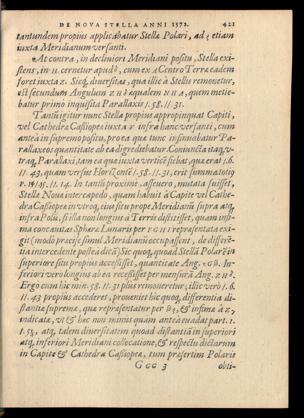 DE NOVA STELLA ANNI 1572. 421
tantundem propius applicabatur Stella Polari, ad
iuxta Meridianum versanti.
At contra, in decliniori Meridiani positu, Stella exi-
stens, in cernetur apud, cum ex A Centro Terra eadem
foret iuxta Z. Sicq, diversitas, qua illic à Stellis removetur,
est secundum Angulum æqualem quem metie-
batur primo inquisita Parallaxis 1. 58. 11. 31.
Tantū igitur nunc Stella propius appropinquat Capiti,
vel Cathedra Cassiopeæ iuxta infra hanc versanti, cum
antea in supremo positu, pro ea qua tunc insinuabatur Pa-
rallaxeos quantitate ab ea digrediebatur. Coniuncta itaq, v-
traq, Parallaxi, tam ea quæ iuxta verticē fiebat, quæ erat 1. 6.
11. 43, quam versus Horizontē 1. 58. 11. 31, erit summa totio
P. 11. 14. In tantū proximè, assevero, mutata fuisset,
Stella Nova intercapedo, quam habuit à Capite vel Cathe-
dra Cassiopeæ in vtroq, eius situ prope Meridianū supra atq,
infra Polū, si illa non longius à Terris distitisset, quam infi-
ma concavitas Sphæræ Lunaris per repræsentata exi-
git (modo præcise simul Meridianū occupassent, de differē-
tia intercedente postea dicā) Sic quoq, quoad Stella Polarē in
superiore situ propius accessisset, quantitate Ang. In-
feriori vero longius ab ea recessisset per mensurā Ang.
Ergo cum hic min. 58. 11 plus removeretur, illic verò 1. 6.
11. 43 propius accederet, proveniet hic quoq, differentia di-
stantiæ supremæ, quæ repræsentatur per & infimæ à
indicata, vt & hac non minus quam antea evadat part. 1. 1.
1. 53, atq, talem diversitatem quoad distantiā in superiori
atq, inferiori Meridiani collocatione, & respectu dictarum
in Capite & Cathedra Cassiopeæ, tum præsertim Polaris
G g g 3 obti-